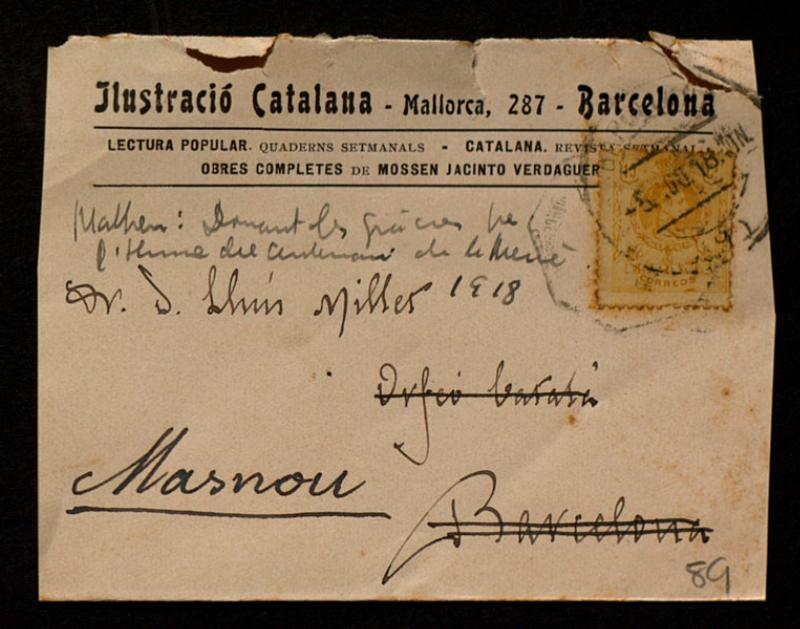 Ilustració Catalana - Mallorca, 287 - Barcelona
LECTURA POPULAR. QUADERNS SETMANALS - CATALANA. REVISTA SETMANAL
OBRES COMPLETES DE MOSSEN JACINTO VERDAGUER
Matheu: Donant les gràcies per
l'Himne del centenari de la Mercè
Dr. D. Lluís Millet 1918
Orfeó Català
Masnou
Barcelona
CORREOS
89